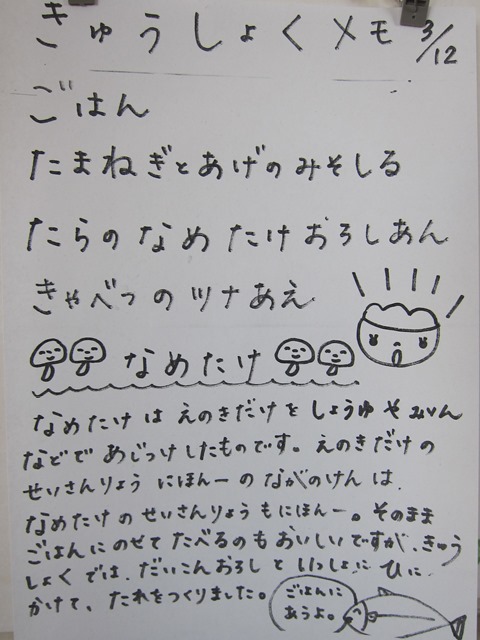 きゅうしょくメモ 3/12
ごはん
たまねぎとあげのみそしる
たらのなめたけおろしあん
きゃべつのツナあえ
なめたけ
なめたけはえのきだけをしょうゆやみりん
などであじつけしたものです。えのきだけの
せいさんりょうにほんーのながのけんは、
なめたけのせいさんりょうもにほんー。そのまま
ごはんにのせてたべるのもおいしいですが、きゅう
しょくでは、だいこんおろしといっしょにひに
かけて、たれをつくりました。
ごはんに
あうよ。